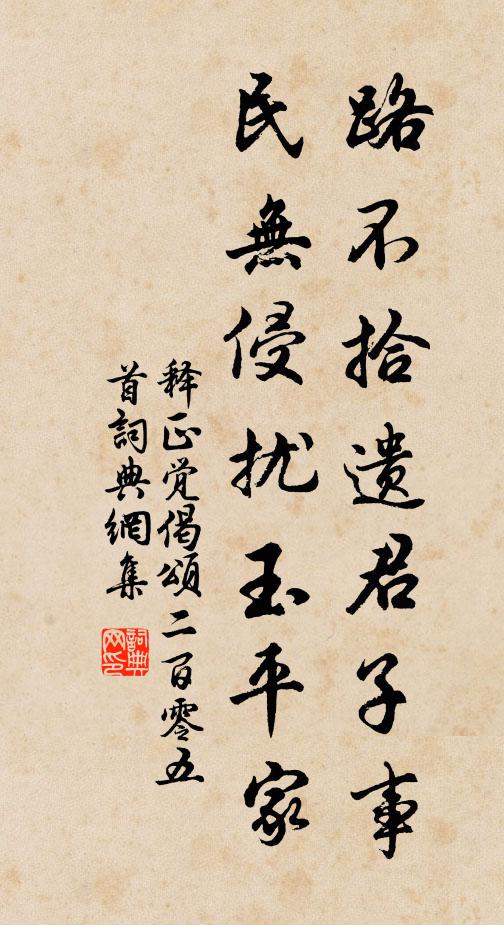 路不拾遗君子事
民無侵扰玉平家
释正觉偈頌二百零五
首詞典網集
詞典
网印